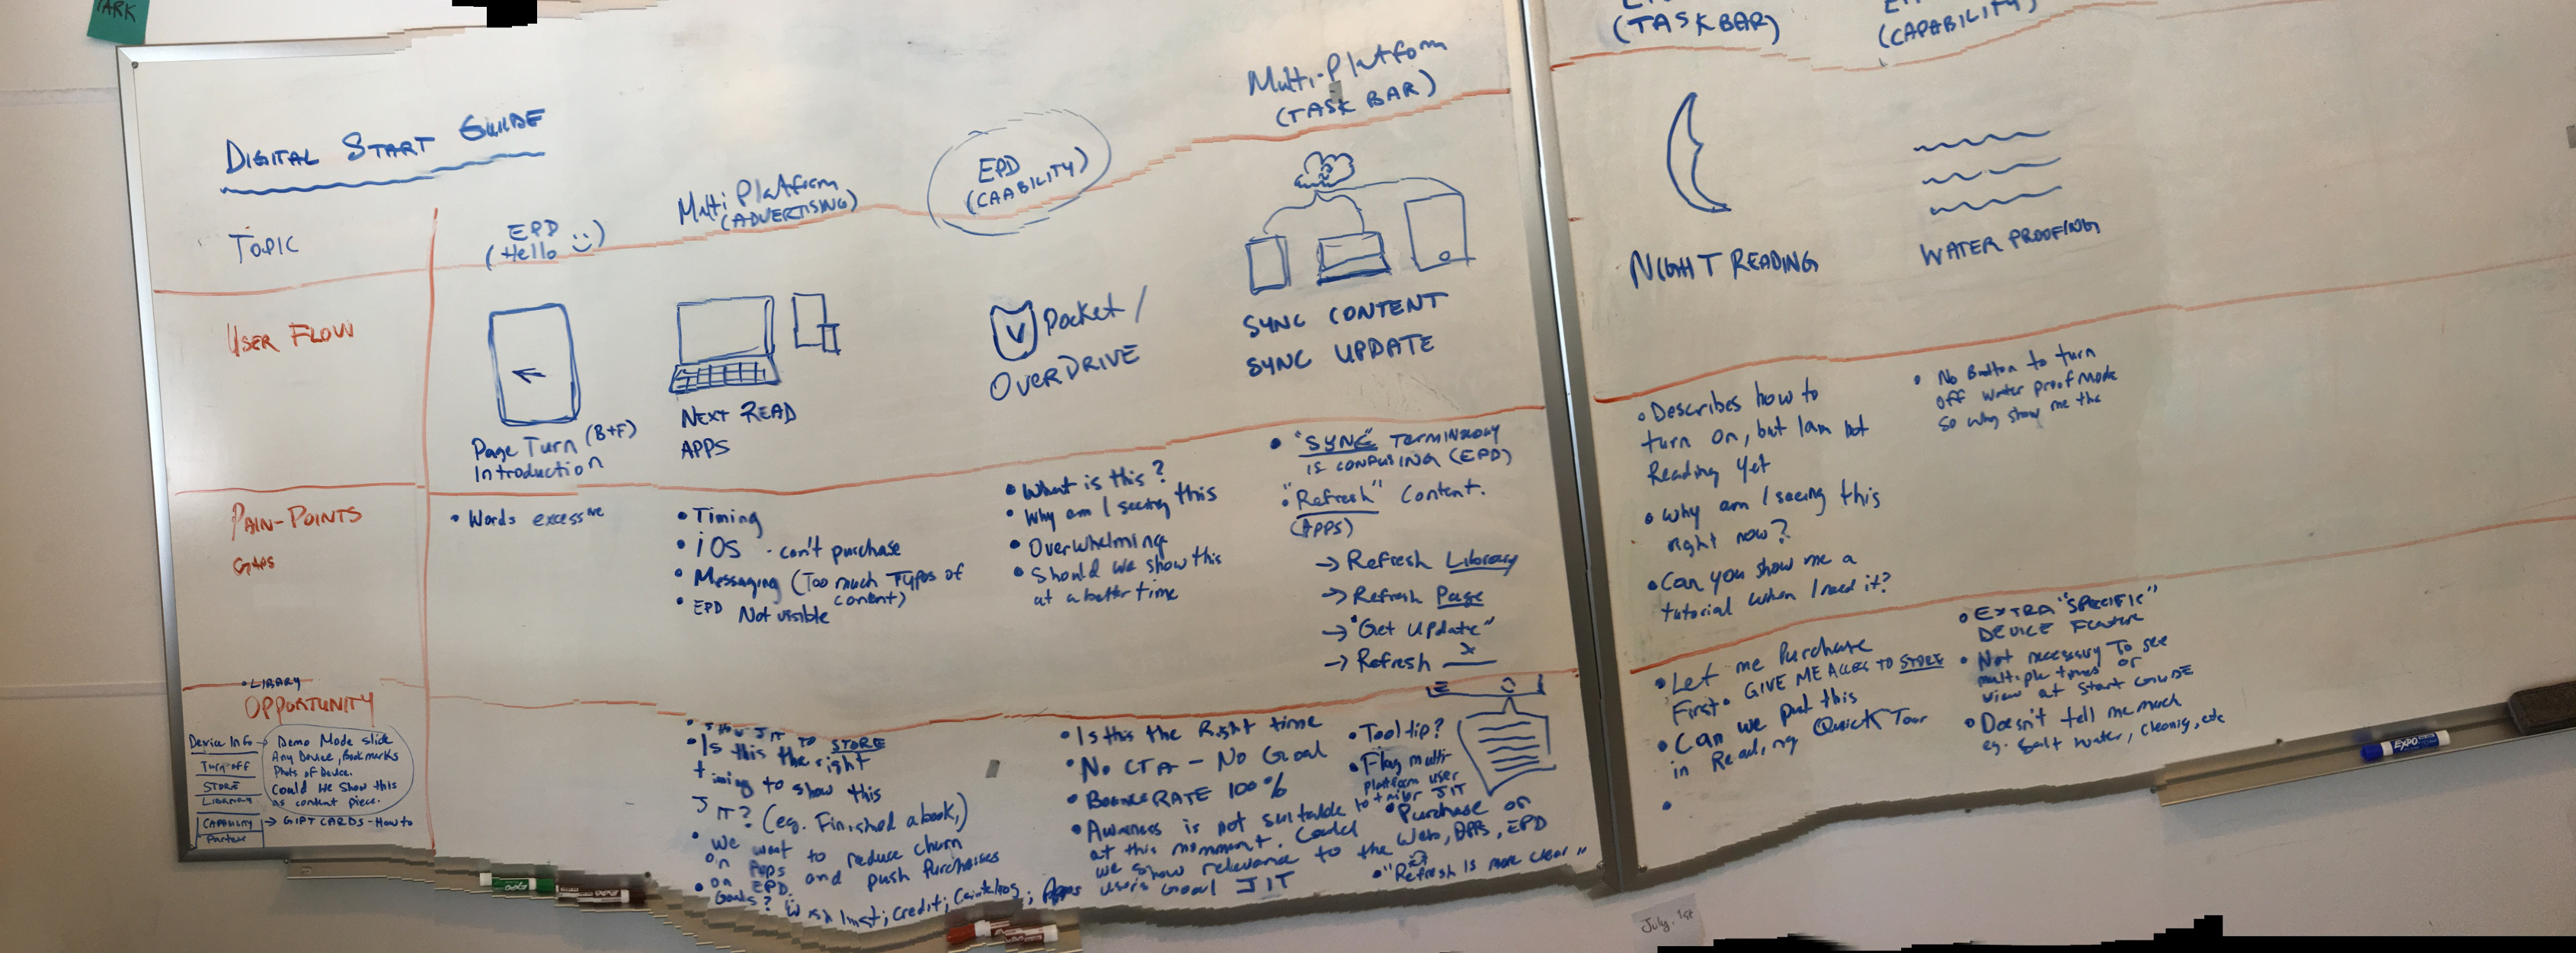 DIGITAL START GUIDE
TOPIC
EPD
(Hello :))
Multi Platform
(ADVERTISING)
EPD
(CAABILITY)
Multi-Platform
(TASK BAR)
(TASKBAR)
(CAPABILITY)
USER FLOW
Page Turn (B+F)
Introduction
NEXT READ
APPS
Pocket /
OVERDRIVE
SYNC CONTENT
SYNC UPDATE
NIGHT READING
WATER PROOFING
PAIN-POINTS
GAPS
• Words excessive
• Timing
• iOS - can't purchase
• Messaging (Too much Types of
content)
• EPD Not visible
• What is this?
• Why am I seeing this
• Overwhelming
• Should we show this
at a better time
• "SYNC" TERMINOLOGY
IS CONFUSING (EPD)
• "Refresh" Content.
(APPS)
→ Refresh Library
→ Refresh Page
→ "Get Update"
→ Refresh x
• Describes how to
turn on, but I am not
Reading yet
• Why am I seeing this
right now?
• Can you show me a
tutorial when I need it?
• No Button to turn
off water proof mode
So why show me the
• LIBRARY
OPPORTUNITY
Device Info →
Turn off
STORE
LIBRARY
CAPABILITY
Partner
Demo Mode slide
Any Device, Bookmarks
Photo of Device.
Could we show this
as content piece.
→ GIFT CARDS - How to
JIT TO STORE
• Is this the right
timing to show this
JIT? (eg. Finished a book,)
• We want to reduce churn
on Apps and push purchases
on EPD.
• Goals? Wish list; Credit; ; Apps
• Is this the Right time
• No CTA - No Goal
• BOUNCE RATE 100%
• Awareness is not suitable
at this momment. Could
we show relevance to the
users Goal JIT
• Tool tip?
• Flag multi-
platform user
to tailor JIT
• Purchase on
Web, APPS, EPD
• "Refresh is more clear"
• Let me Purchase
First • GIVE ME ACCESS TO STORE
• Can we put this
in Reading Quick Tour
• EXTRA "SPECIFIC"
DEVICE FEATURE
• Not necessary To see
multiple times or
view at START GUIDE
• Doesn't tell me much
eg. Salt water, cleaning, etc
EXPO
July. 1st